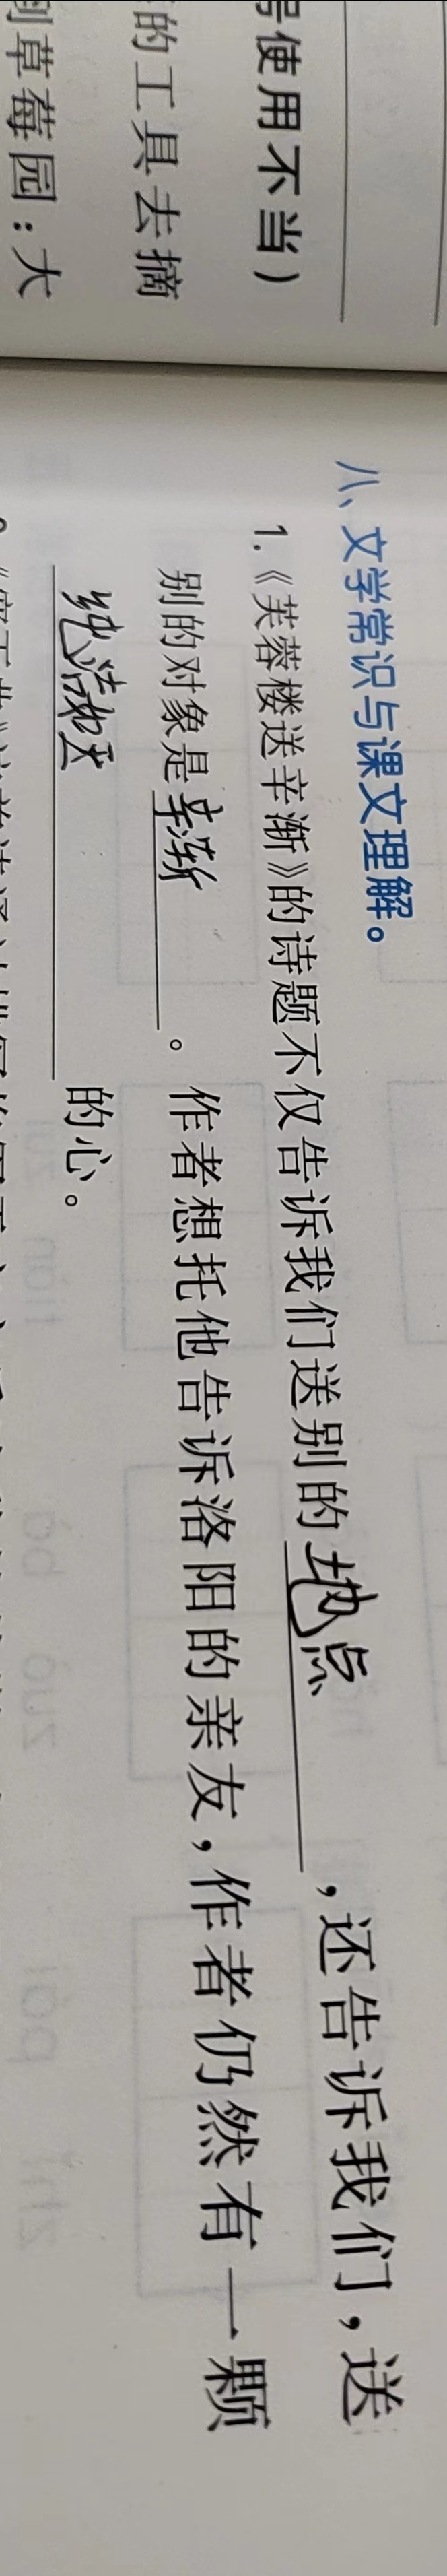 号使用不当）
的工具去摘
到草莓园：大
八、文学常识与课文理解。
1.《芙蓉楼送辛渐》的诗题不仅告诉我们送别的地点，还告诉我们，送
别的对象是辛渐。作者想托他告诉洛阳的亲友，作者仍然有一颗
纯洁无瑕的心。